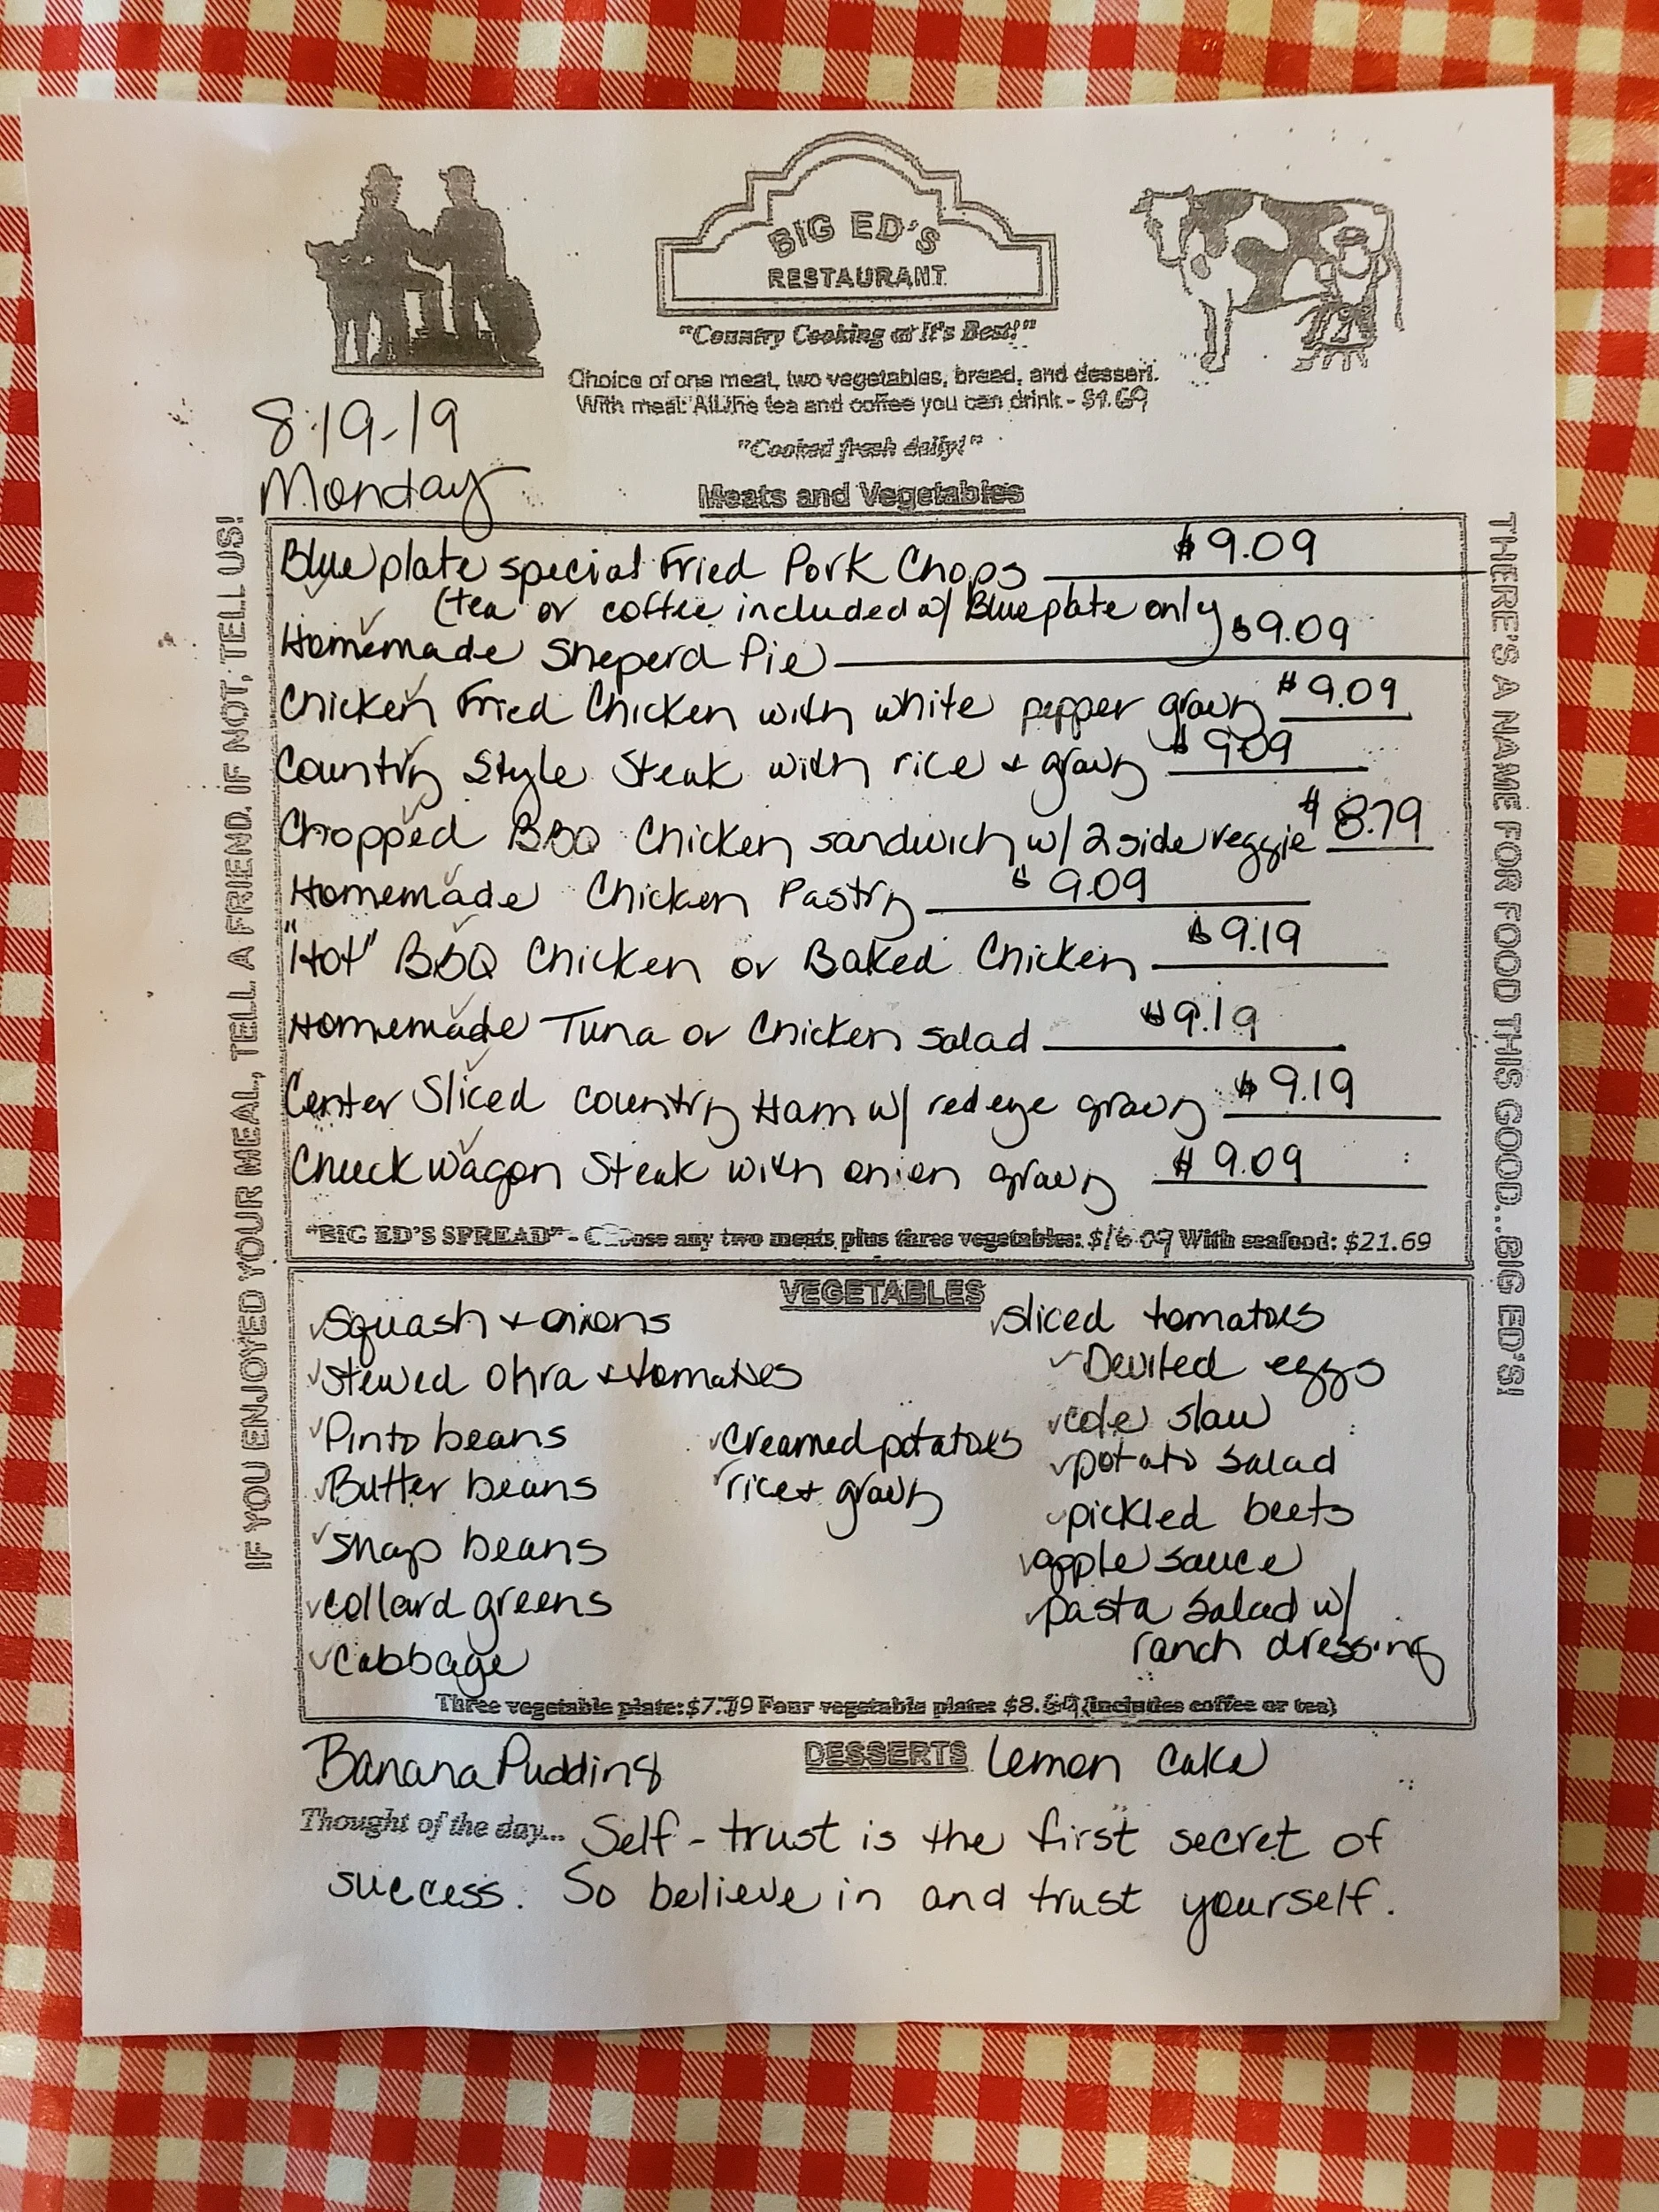 BIG ED'S
RESTAURANT
"Country Cooking at It's Best!"
Choice of one meat, two vegetables, bread, and dessert.
With meal: All the tea and coffee you can drink - $1.69
"Cooked fresh daily!"
8-19-19
Monday
Meats and Vegetables
IF YOU ENJOYED YOUR MEAL, TELL A FRIEND. IF NOT, TELL US!
Blue plate special Fried Pork Chops $9.09
(tea or coffee included w/ Blue plate only)
Homemade Sheperd Pie $9.09
Chicken Fried Chicken with white pepper gravy $9.09
Country Style Steak with rice + gravy $9.09
Chopped BBQ Chicken sandwich w/ 2 side veggie $8.79
Homemade Chicken Pastry $9.09
"Hot" BBQ Chicken or Baked Chicken $9.19
Homemade Tuna or Chicken salad $9.19
Center Sliced Country Ham w/ redeye gravy $9.19
Chuck wagon Steak with onion gravy $9.09
"BIG ED'S SPREAD" - Choose any two meats plus three vegetables: $16.09 With seafood: $21.69
THERE'S A NAME FOR FOOD THIS GOOD...BIG ED'S!
VEGETABLES
Squash + onions
Stewed Okra + tomatoes
Pinto beans
Butter beans
Snap beans
Collard greens
Cabbage
Creamed potatoes
rice + gravy
sliced tomatoes
Deviled eggs
cole slaw
potato salad
pickled beets
apple sauce
pasta salad w/
ranch dressing
Three vegetable plate: $7.79 Four vegetable plate: (includes coffee or tea)
DESSERTS
Banana Pudding
lemon cake
Thought of the day... Self-trust is the first secret of
success. So believe in and trust yourself.